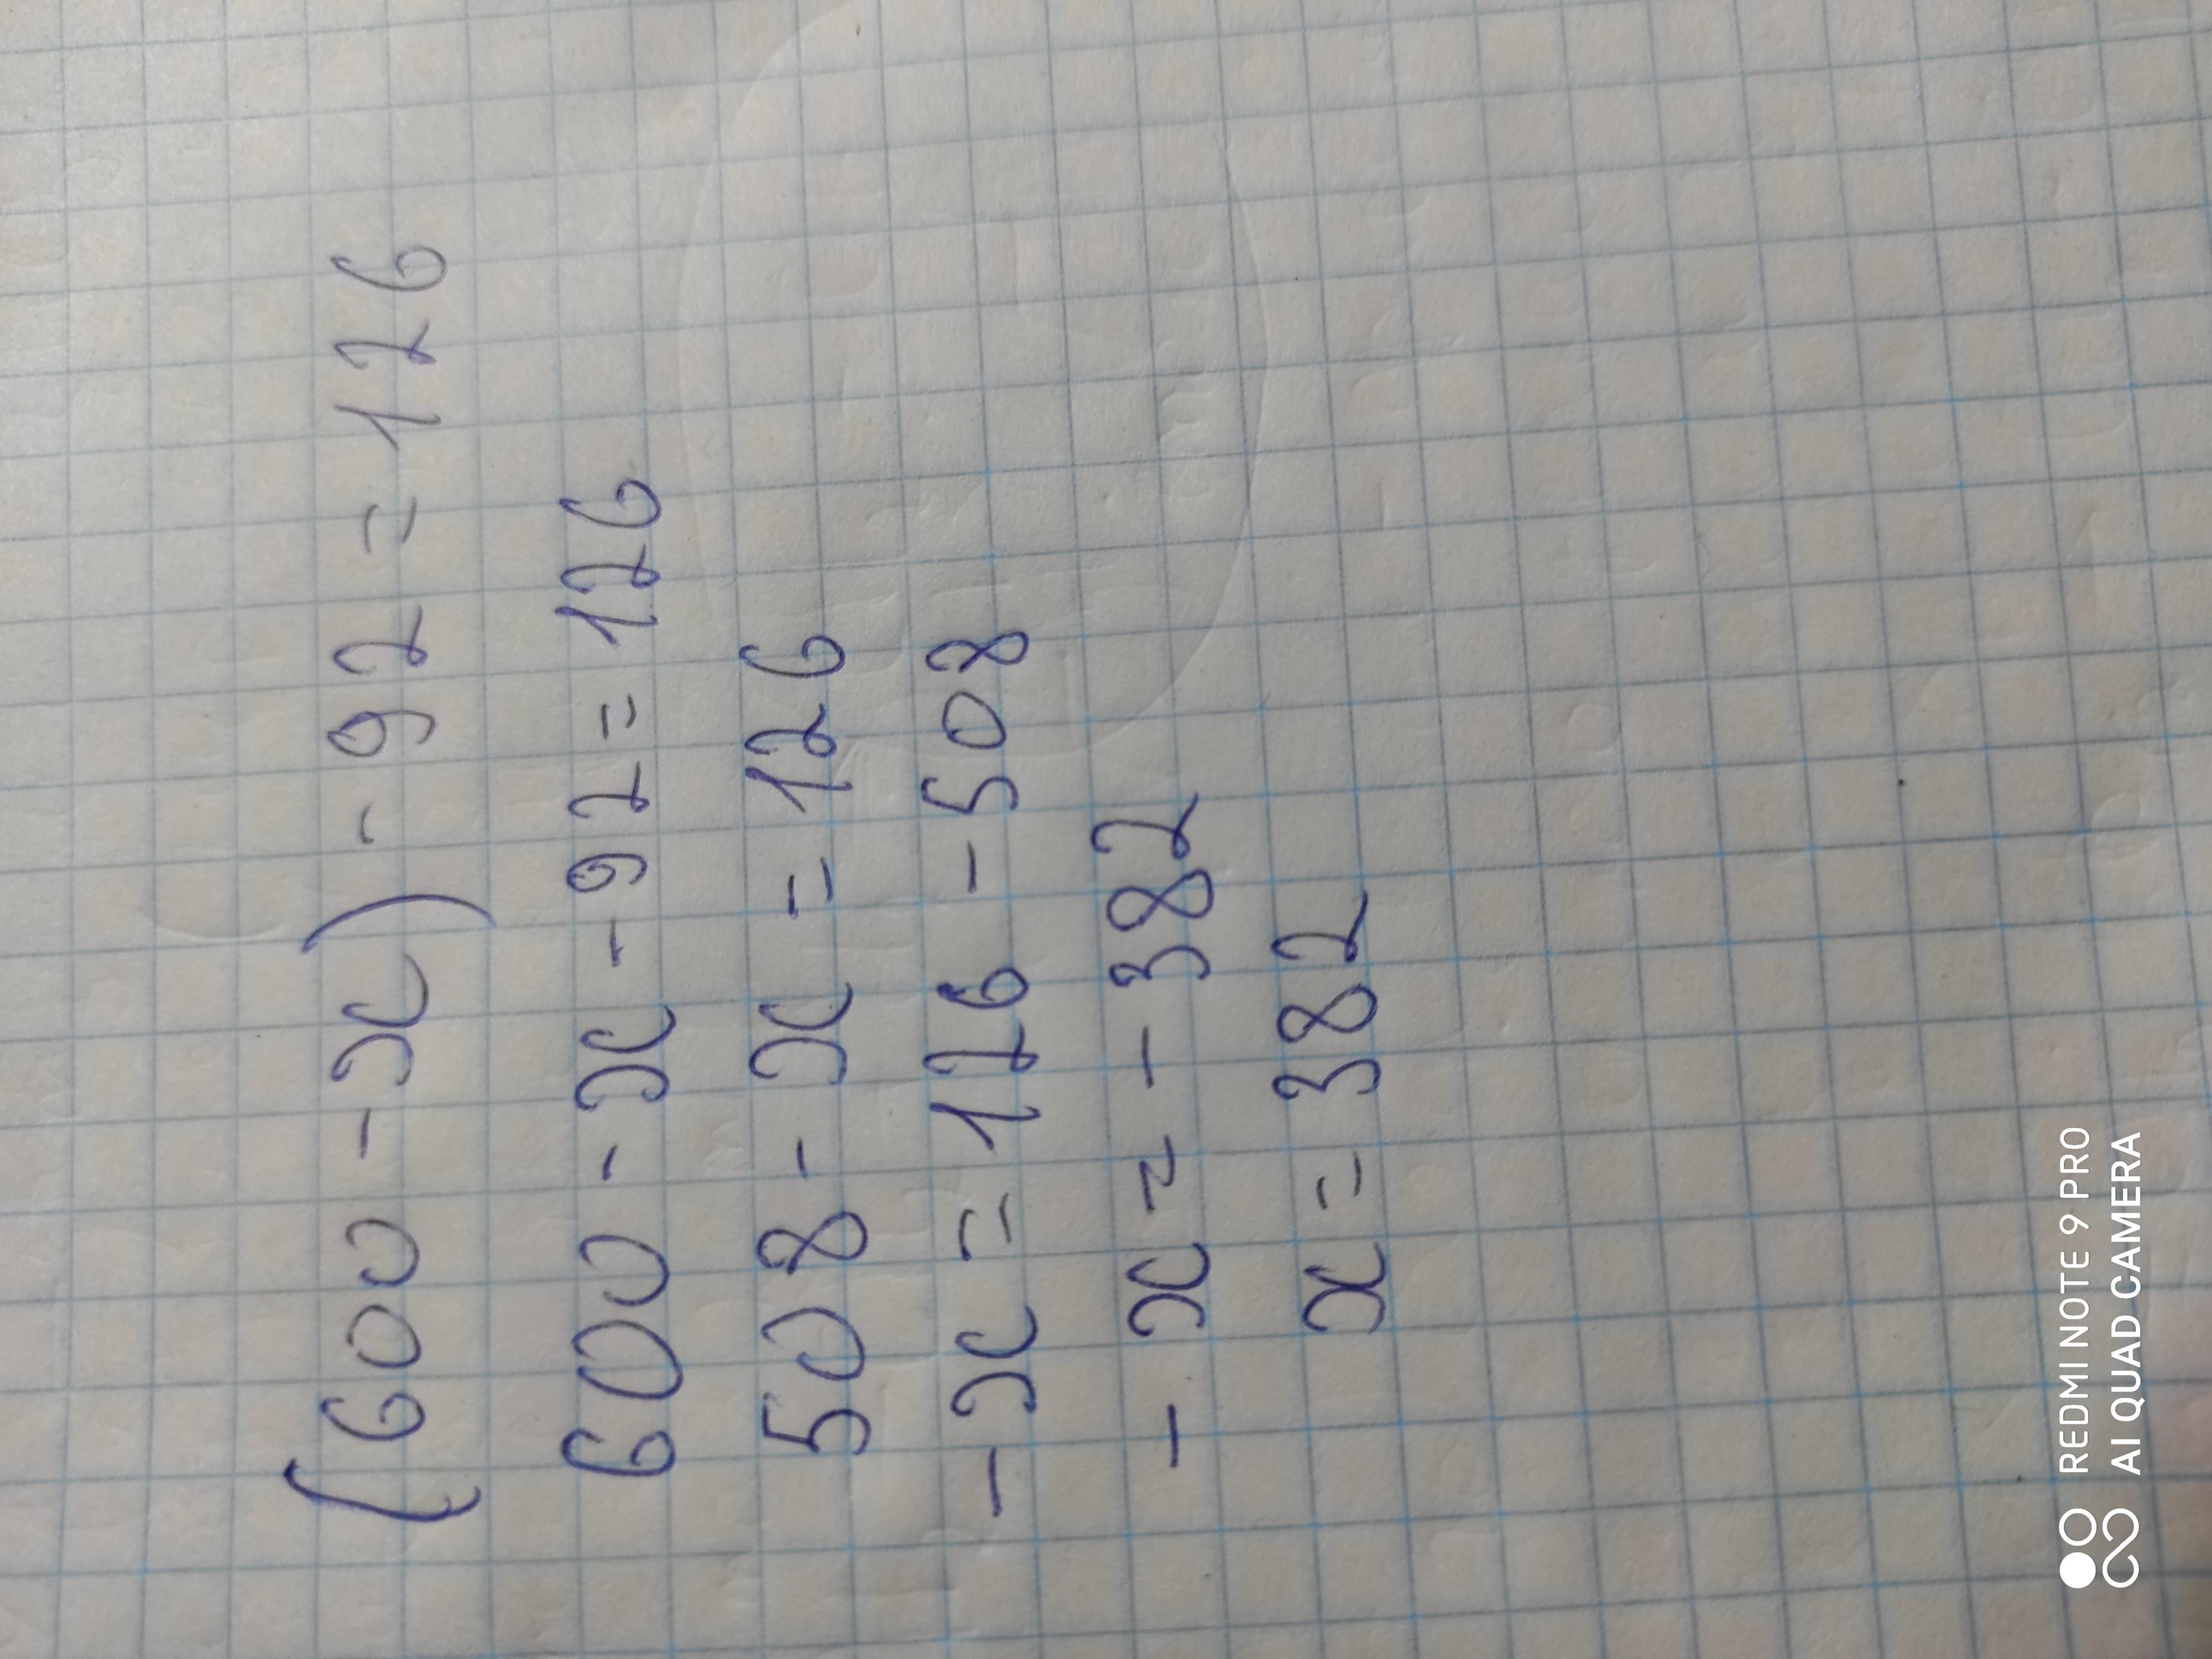 (600 - x) - 92 = 126
600 - x - 92 = 126
508 - x = 126
- x = 126 - 508
- x = - 382
x = 382
REDMI NOTE 9 PRO
AI QUAD CAMERA